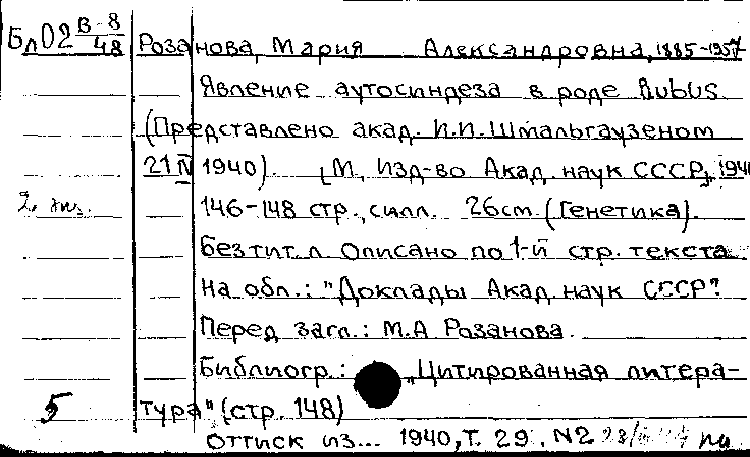 Бл02 В-8/48 Розанова, Мария Александровна, 1885-1957
Явление аутосиндеза в роде Rubus
(Представлено акад. И.И. Шмальгаузеном
21 IV 1940). [М., Изд-во Акад. наук СССР], 1940
2 экз. 146-148 стр., с илл. 26 см. (Генетика).
Без тит. л. Описано по 1-й стр. текста
На обл.: "Доклады Акад. наук СССР".
Перед загл.: М.А Розанова.
Библиогр.: "Цитированная литера-
5 тура" (стр. 148)
Оттиск из... 1940, Т. 29, N2